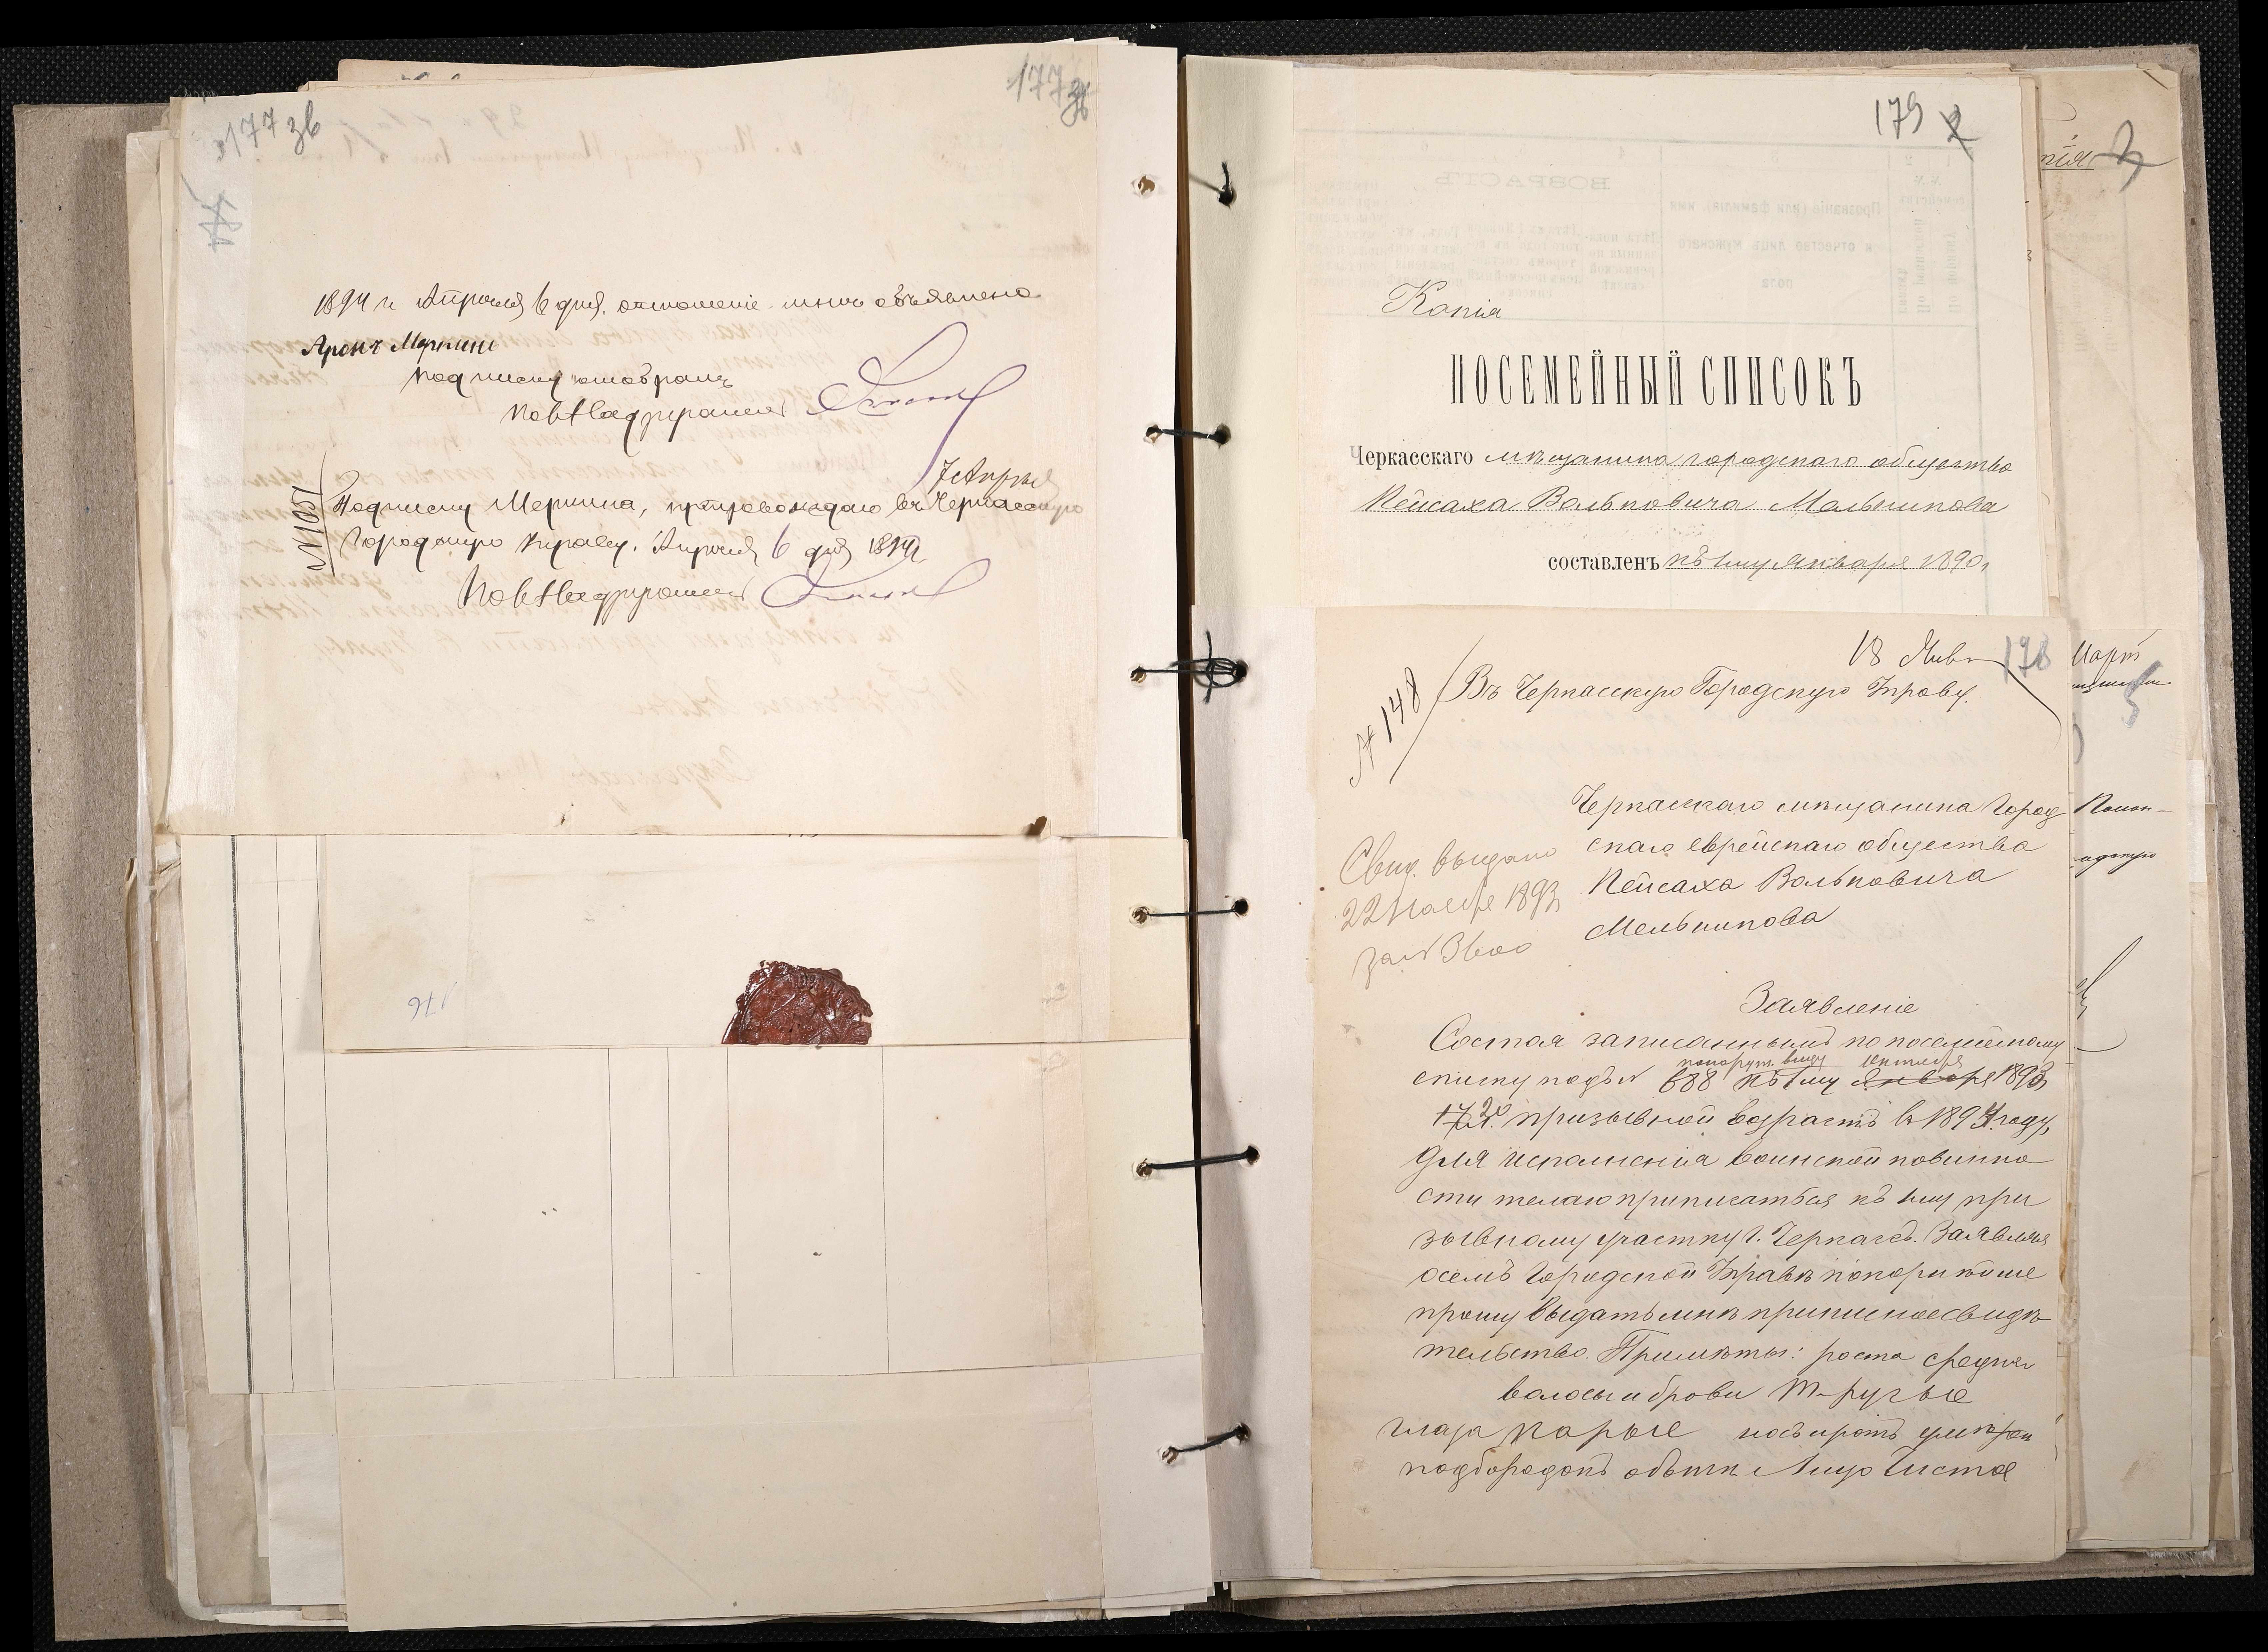 177 зв
177 зв
1894 г. Апреля 6 дня, отношение мне объявлено
Аронъ Меркинъ
подписку отобралъ
Пов. Надзиратель
7 Апреля
№ 1051
Подписку Меркина, препровождаю въ Черкасскую
Городскую Управу. Апреля 6 дня 1894 г.
Пов. Надзиратель
176
179 2
Копія
ПОСЕМЕЙНЫЙ СПИСОКЪ
Черкасскаго мѣщанина городскаго общества
Пейсаха Вольковича Мельникова
составленъ къ 1му Января 1890 г.
3
18 Янв.
178
№ 148
Въ Черкасскую Городскую Управу.
Черкасскаго мѣщанина Город
скаго еврейскаго общества
Пейсаха Вольковича
Мельникова
Свид. выдано
22 Ноября 1893
за №
Заявленіе
Состоя записаннымъ по посемейному
списку подъ № 688 къ 1му Января 1893
призывной возрастъ въ 1894 году,
для исполненія воинской повинно
сти желаю приписаться къ 1му при
зывному участку г. Черкассъ. Заявляя
о семъ Городской Управѣ покорнѣйше
прошу выдать мнѣ приписное свидѣ
тельство. Примѣты: роста средня
волосы и брови т-русые
глаза карые носъ и ротъ умѣрен
подбородокъ обыкн Лицо Чистое
Март
5